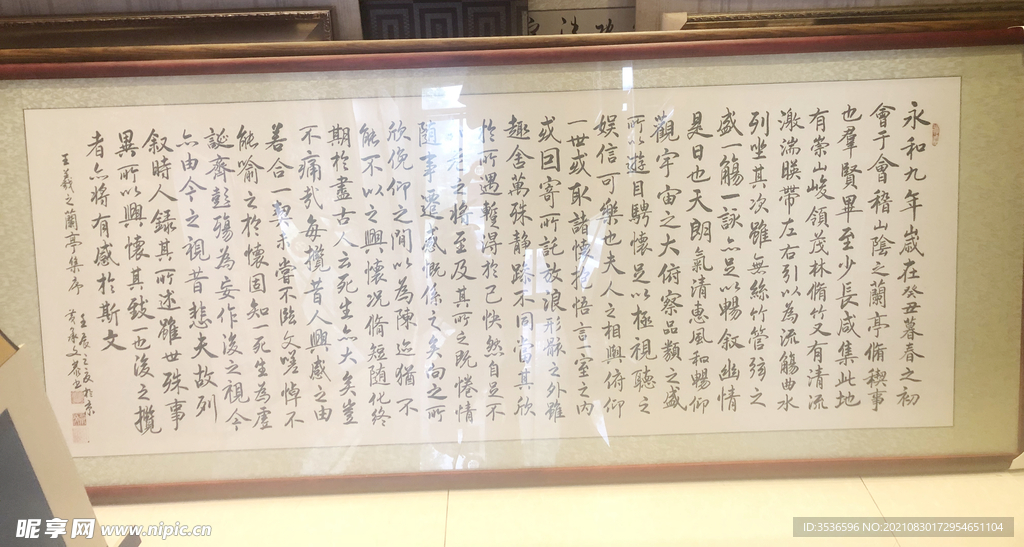 永和九年歲在癸丑暮春之初
會于會稽山陰之蘭亭脩稧事
也羣賢畢至少長咸集此地
有崇山峻領茂林脩竹又有清流
激湍暎帶左右引以為流觴曲水
列坐其次雖無絲竹管弦之
盛一觴一詠亦足以暢叙幽情
是日也天朗氣清惠風和暢仰
觀宇宙之大俯察品類之盛
所以遊目騁懷足以極視聽之
娛信可樂也夫人之相與俯仰
一世或取諸懷抱悟言一室之內
或因寄所託放浪形骸之外雖
趣舍萬殊静躁不同當其欣
於所遇暫得於己快然自足不
老之將至及其所之既惓情
隨事遷感慨係之矣向之所
欣俛仰之間以為陳迹猶不
能不以之興懷況脩短随化終
期於盡古人云死生亦大矣豈
不痛哉每攬昔人興感之由
若合一契未嘗不臨文嗟悼不
能喻之於懷固知一死生為虛
誕齊彭殤為妄作後之視今
亦由今之視昔悲夫故列
叙時人録其所述雖世殊事
異所以興懷其致一也後之攬
者亦將有感於斯文
王羲之蘭亭集序
昵享网 www.nipic.cn
ID:3536596 NO:20210830172954651104